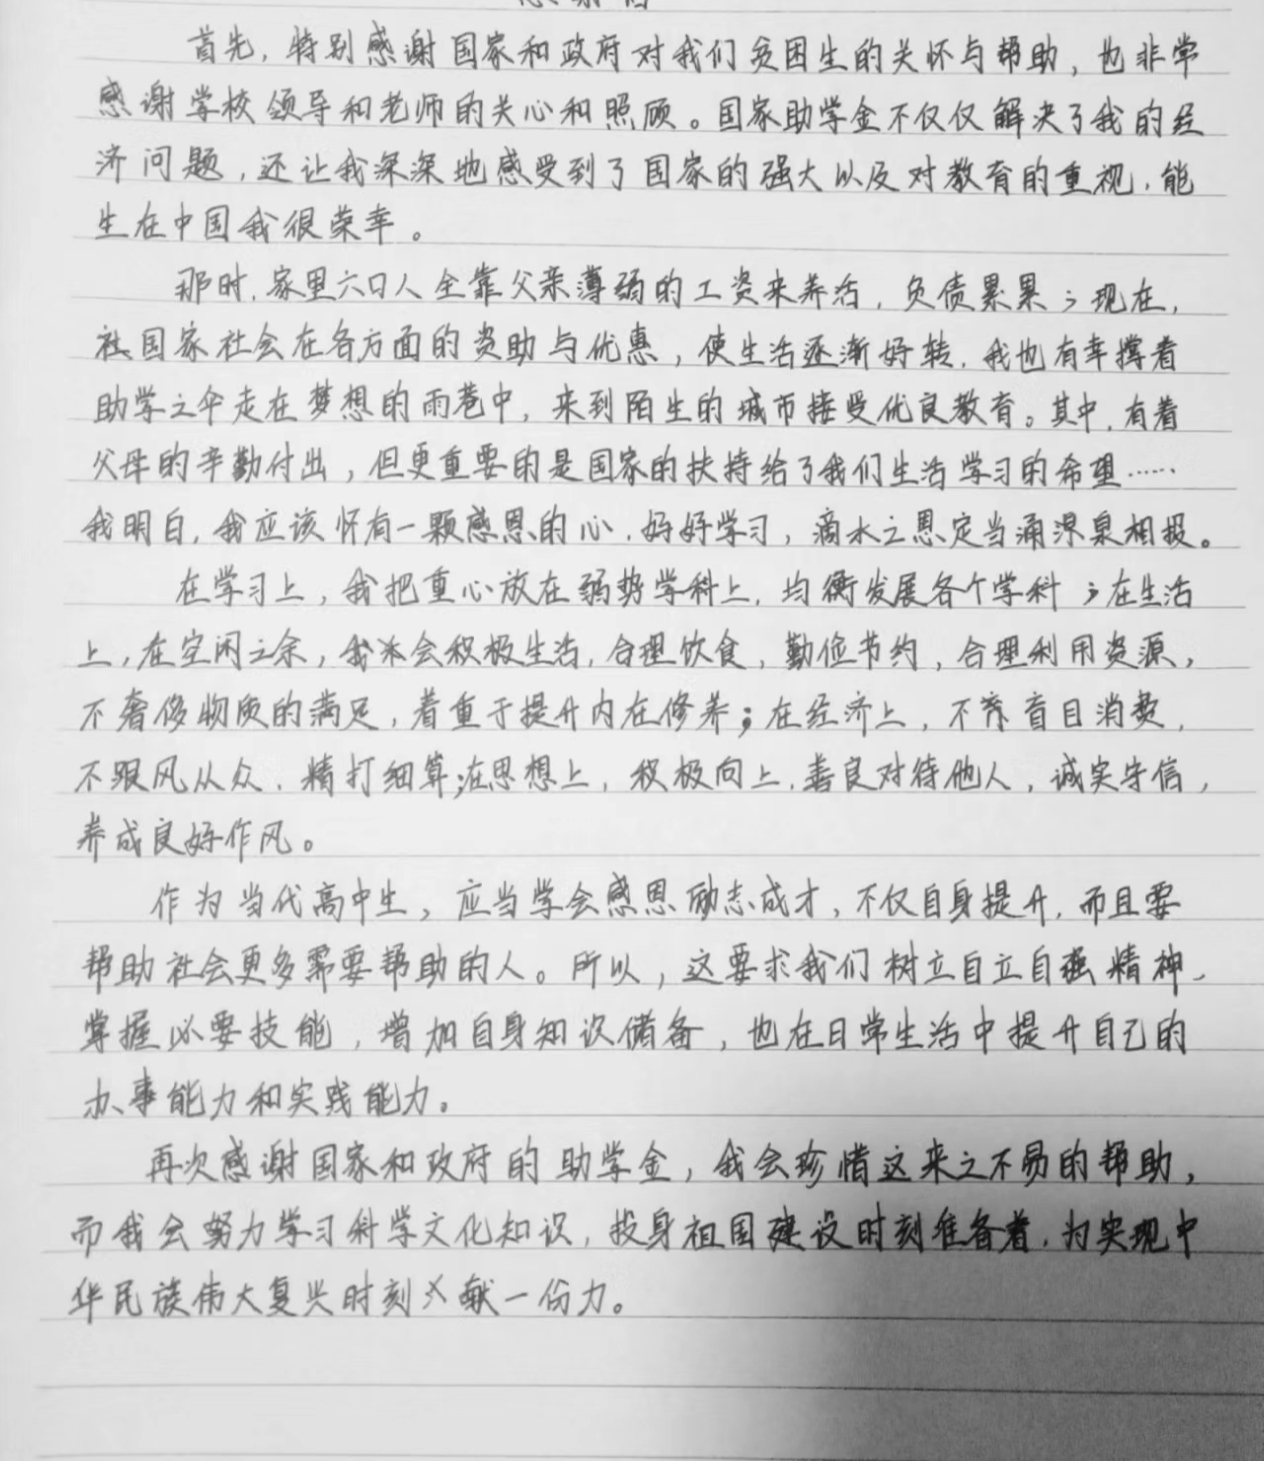 首先，特别感谢国家和政府对我们贫困生的关怀与帮助，也非常
感谢学校领导和老师的关心和照顾。国家助学金不仅仅解决了我的经
济问题，还让我深深地感受到了国家的强大以及对教育的重视，能
生在中国我很荣幸。
那时，家里六口人全靠父亲薄弱的工资来养活，负债累累；现在，
国家社会在各方面的资助与优惠，使生活逐渐好转，我也有幸撑着
助学之伞走在梦想的雨巷中，来到陌生的城市接受优良教育。其中，有着
父母的辛勤付出，但更重要的是国家的扶持给了我们生活学习的希望……
我明白，我应该怀有一颗感恩的心，好好学习，滴水之恩定当涌泉相报。
在学习上，我把重心放在弱势学科上，均衡发展各个学科；在生活
上，在空闲之余，我会积极生活，合理饮食，勤俭节约，合理利用资源，
不奢侈物质的满足，着重于提升内在修养；在经济上，不盲目消费，
不跟风从众，精打细算；在思想上，积极向上，善良对待他人，诚实守信，
养成良好作风。
作为当代高中生，应当学会感恩励志成才，不仅自身提升，而且要
帮助社会更多需要帮助的人。所以，这要求我们树立自立自强精神，
掌握必要技能，增加自身知识储备，也在日常生活中提升自己的
办事能力和实践能力。
再次感谢国家和政府的助学金，我会珍惜这来之不易的帮助，
而我会努力学习科学文化知识，投身祖国建设时刻准备着，为实现中
华民族伟大复兴时刻献一份力。